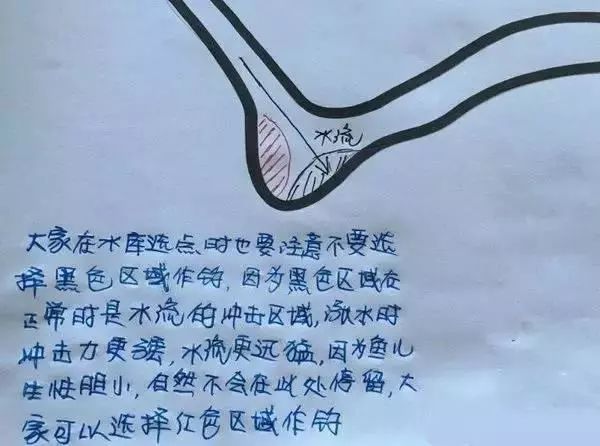 水流
大家在水库选点时也要注意不要选
择黑色区域作钓,因为黑色区域在
正常时是水流的冲击区域,涨水时
冲击力更强,水流更迅猛,因为鱼儿
生性胆小,自然不会在此处停留,大
家可以选择红色区域作钓